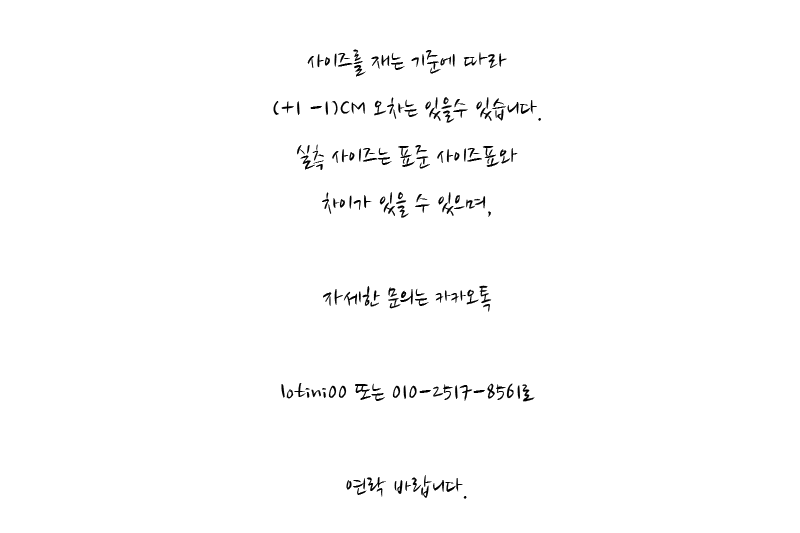 사이즈를 재는 기준에 따라
(+1 -1)CM 오차는 있을수 있습니다.
실측 사이즈는 표준 사이즈표와
차이가 있을 수 있으며,
자세한 문의는 카카오톡
lotini00 또는 010-2517-8561로
연락 바랍니다.